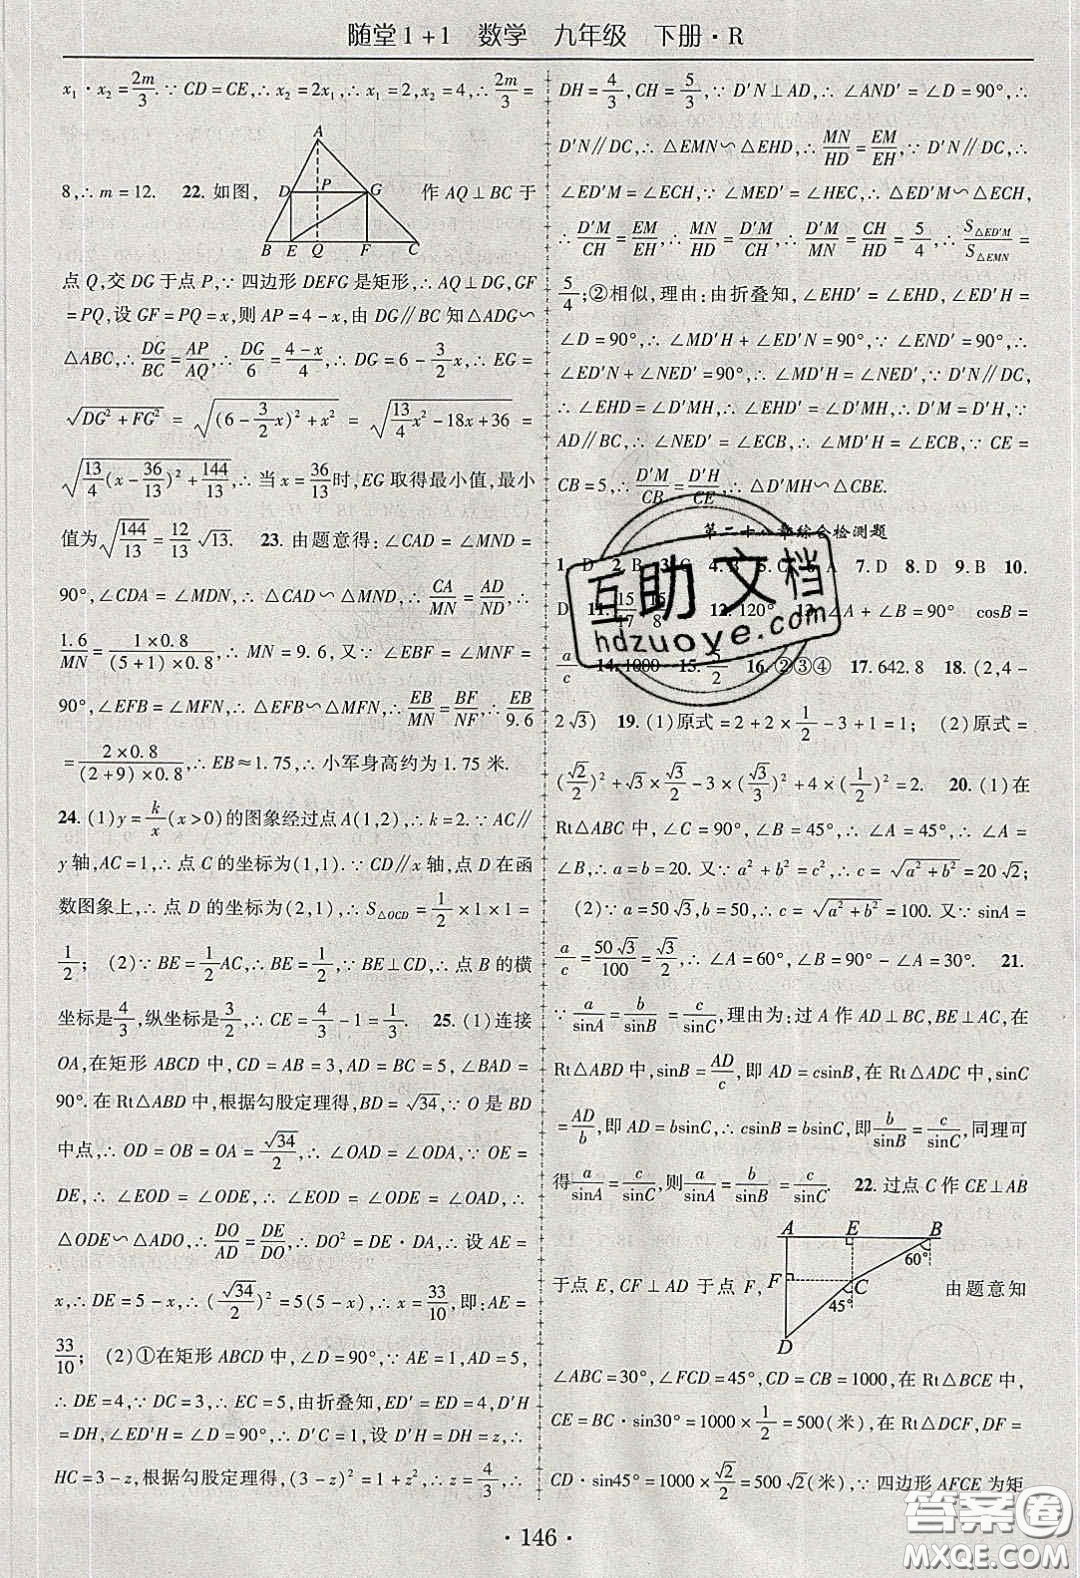 随堂1+1 数学 九年级 下册·R
x₁·x₂=2m/3.∵CD=CE,∴x₂=2x₁,∴x₁=2,x₂=4,∴2m/3=
A
8,∴m=12. 22. 如图, D P G 作AQ⊥BC于
B E Q F C
点Q,交DG于点P,∵四边形DEFG是矩形,∴AQ⊥DG,GF
=PQ,设GF=PQ=x,则AP=4-x,由DG∥BC知△ADG∽
△ABC,∴DG/BC=AP/AQ,∴DG/6=(4-x)/4,∴DG=6-3/2x,∴EG=
√(DG²+FG²)=√((6-3/2x)²+x²)=√(13/4x²-18x+36)=
√(13/4(x-36/13)²+144/13),∴当x=36/13时,EG取得最小值,最小
值为√(144/13)=12/13√13. 23. 由题意得:∠CAD=∠MND=
90°,∠CDA=∠MDN,∴△CAD∽△MND,∴CA/MN=AD/ND,∴
1.6/MN=(1×0.8)/((5+1)×0.8),∴MN=9.6,又∵∠EBF=∠MNF=
90°,∠EFB=∠MFN,∴△EFB∽△MFN,∴EB/MN=BF/NF,∴EB/9.6
=(2×0.8)/((2+9)×0.8),∴EB≈1.75,∴小军身高约为1.75米.
24. (1)y=k/x(x>0)的图象经过点A(1,2),∴k=2.∵AC∥
y轴,AC=1,∴点C的坐标为(1,1).∵CD∥x轴,点D在函
数图象上,∴点D的坐标为(2,1),∴S△OCD=1/2×1×1=
1/2; (2)∵BE=1/2AC,∴BE=1/2,∵BE⊥CD,∴点B的横
坐标是4/3,纵坐标是3/2,∴CE=4/3-1=1/3. 25. (1)连接
OA,在矩形ABCD中,CD=AB=3,AD=BC=5,∠BAD=
90°.在Rt△ABD中,根据勾股定理得,BD=√34,∵O是BD
中点,∴OD=OB=OA=√34/2,∴∠OAD=∠ODA,∵OE=
DE,∴∠EOD=∠ODE,∴∠EOD=∠ODE=∠OAD,∴
△ODE∽△ADO,∴DO/AD=DE/DO,∴DO²=DE·DA,∴设AE=
x,∴DE=5-x,∴(√34/2)²=5(5-x),∴x=33/10,即:AE=
33/10; (2)①在矩形ABCD中,∠D=90°,∵AE=1,AD=5,
∴DE=4,∵DC=3,∴EC=5,由折叠知,ED'=ED=4,D'H
=DH,∠ED'H=∠D=90°,∴D'C=1,设D'H=DH=z,∴
HC=3-z,根据勾股定理得,(3-z)²=1+z²,∴z=4/3,∴
DH=4/3,CH=5/3,∵D'N⊥AD,∴∠AND'=∠D=90°,∴
D'N∥DC,∴△EMN∽△EHD,∴MN/HD=EM/EH,∵D'N∥DC,∴
∠ED'M=∠ECH,∵∠MED'=∠HEC,∴△ED'M∽△ECH,
∴D'M/CH=EM/EH,∴MN/HD=D'M/CH,∴D'M/MN=CH/HD=5/4,∴S△ED'M/S△EMN=
5/4;②相似,理由:由折叠知,∠EHD'=∠EHD,∠ED'H=
∠D=90°,∴∠MD'H+∠ED'N=90°,∵∠END'=90°,∴
∠ED'N+∠NED'=90°,∴∠MD'H=∠NED',∵D'N∥DC,
∴∠EHD=∠D'MH,∴∠EHD'=∠D'MH,∴D'M=D'H,∵
AD∥BC,∴∠NED'=∠ECB,∴∠MD'H=∠ECB,∵CE=
CB=5,∴D'M/CB=D'H/CE,∴△D'MH∽△CBE.
第二十八章综合检测题
1. D 2. B 3. C 4. B 5. C 6. A 7. D 8. D 9. B 10.
D 11. 15/17 15/8 12. 120° 13. ∠A+∠B=90° cosB=
a/c 14. 1000 15. 5/2 16. ②③④ 17. 642.8 18. (2,4-
2√3) 19. (1)原式=2+2×1/2-3+1=1; (2)原式=
(√2/2)²+√3×√3/2-3×(√3/3)²+4×(1/2)²=2. 20. (1)在
Rt△ABC中,∠C=90°,∠B=45°,∴∠A=45°,∴∠A=
∠B,∴a=b=20. 又∵a²+b²=c²,∴c=√(a²+b²)=20√2;
(2)∵a=50√3,b=50,∴c=√(a²+b²)=100. 又∵sinA=
a/c=50√3/100=√3/2,∴∠A=60°,∠B=90°-∠A=30°. 21.
∵a/sinA=b/sinB=c/sinC,理由为:过A作AD⊥BC,BE⊥AC,在
Rt△ABD中,sinB=AD/c,即AD=csinB,在Rt△ADC中,sinC
=AD/b,即AD=bsinC,∴csinB=bsinC,即b/sinB=c/sinC,同理可
得a/sinA=c/sinC,则a/sinA=b/sinB=c/sinC. 22. 过点C作CE⊥AB
A E B
60°
于点E,CF⊥AD于点F, F C 由题意知
45°
D
∠ABC=30°,∠FCD=45°,CD=CB=1000,在Rt△BCE中,
CE=BC·sin30°=1000×1/2=500(米),在Rt△DCF中,DF=
CD·sin45°=1000×√2/2=500√2(米),∵四边形AFCE为矩
·146·
互助文档
hdzuoye.com
答案圈
MXQE.COM